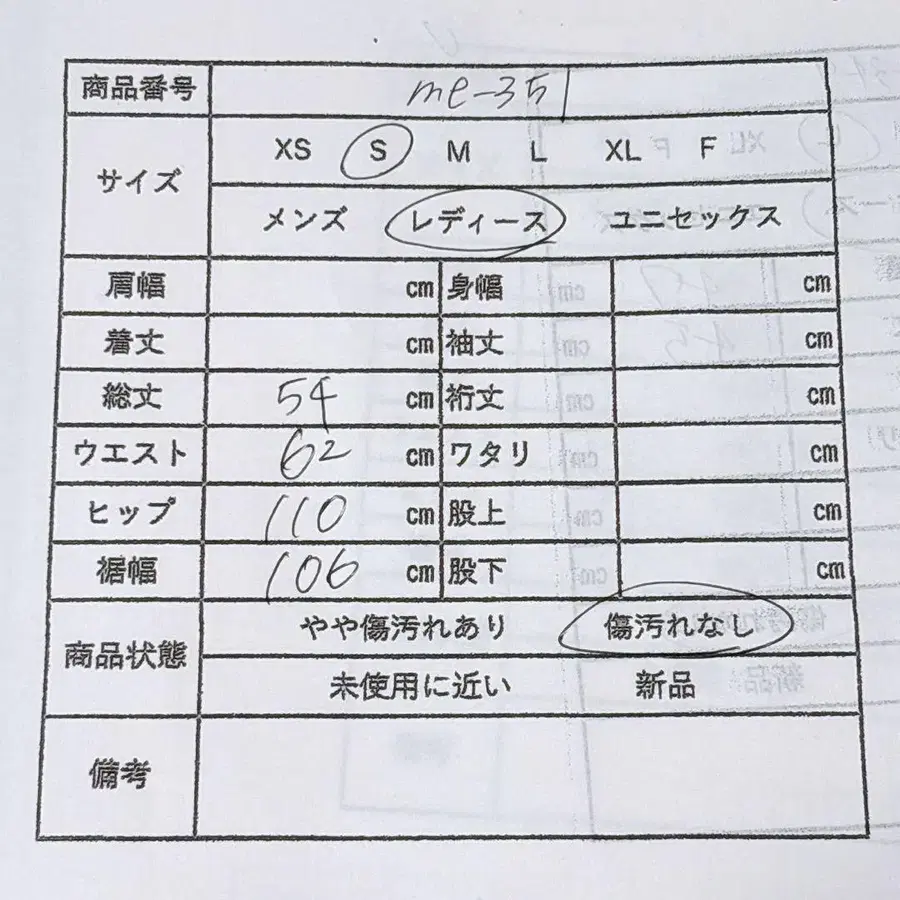 商品番号 me-351
サイズ XS S M L XL F
メンズ レディース ユニセックス
肩幅 cm 身幅 cm
着丈 cm 袖丈 cm
総丈 54 cm 裄丈 cm
ウエスト 62 cm ワタリ cm
ヒップ 110 cm 股上 cm
裾幅 106 cm 股下 cm
商品状態 やや傷汚れあり 傷汚れなし
未使用に近い 新品
備考